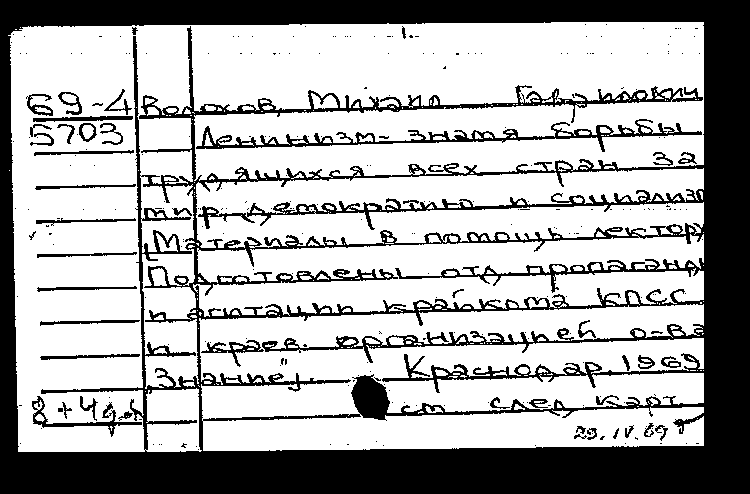 1.
69-4 Волохов, Михаил Гаврилович
5703 Ленинизм- знамя борьбы
трудящихся всех стран за
мир, демократию и социализм
[Материалы в помощь лектору
Подготовлены отд пропаганды
и агитации крайкома КПСС
и краев. организацией о-ва
"Знание"]. Краснодар. 1969
8 + 4 см след карт
29.IV.69